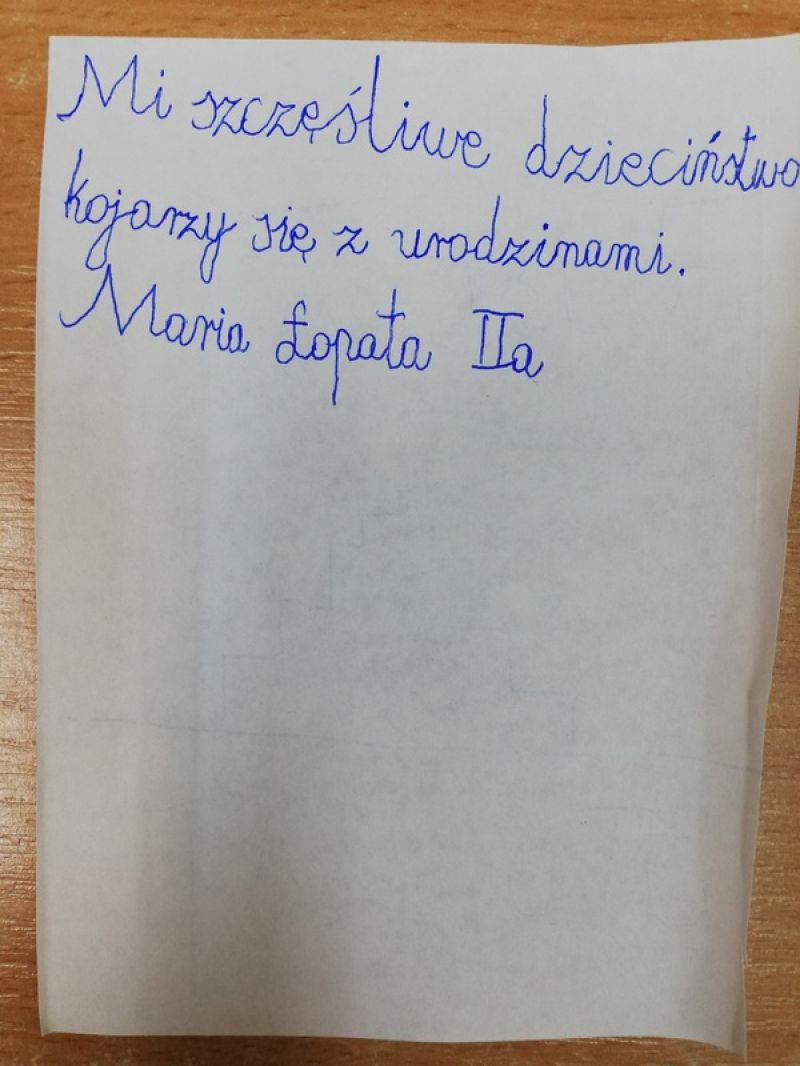 Mi szczęśliwe dzieciństwo
kojarzy się z urodzinami.
Maria Łopata IIa